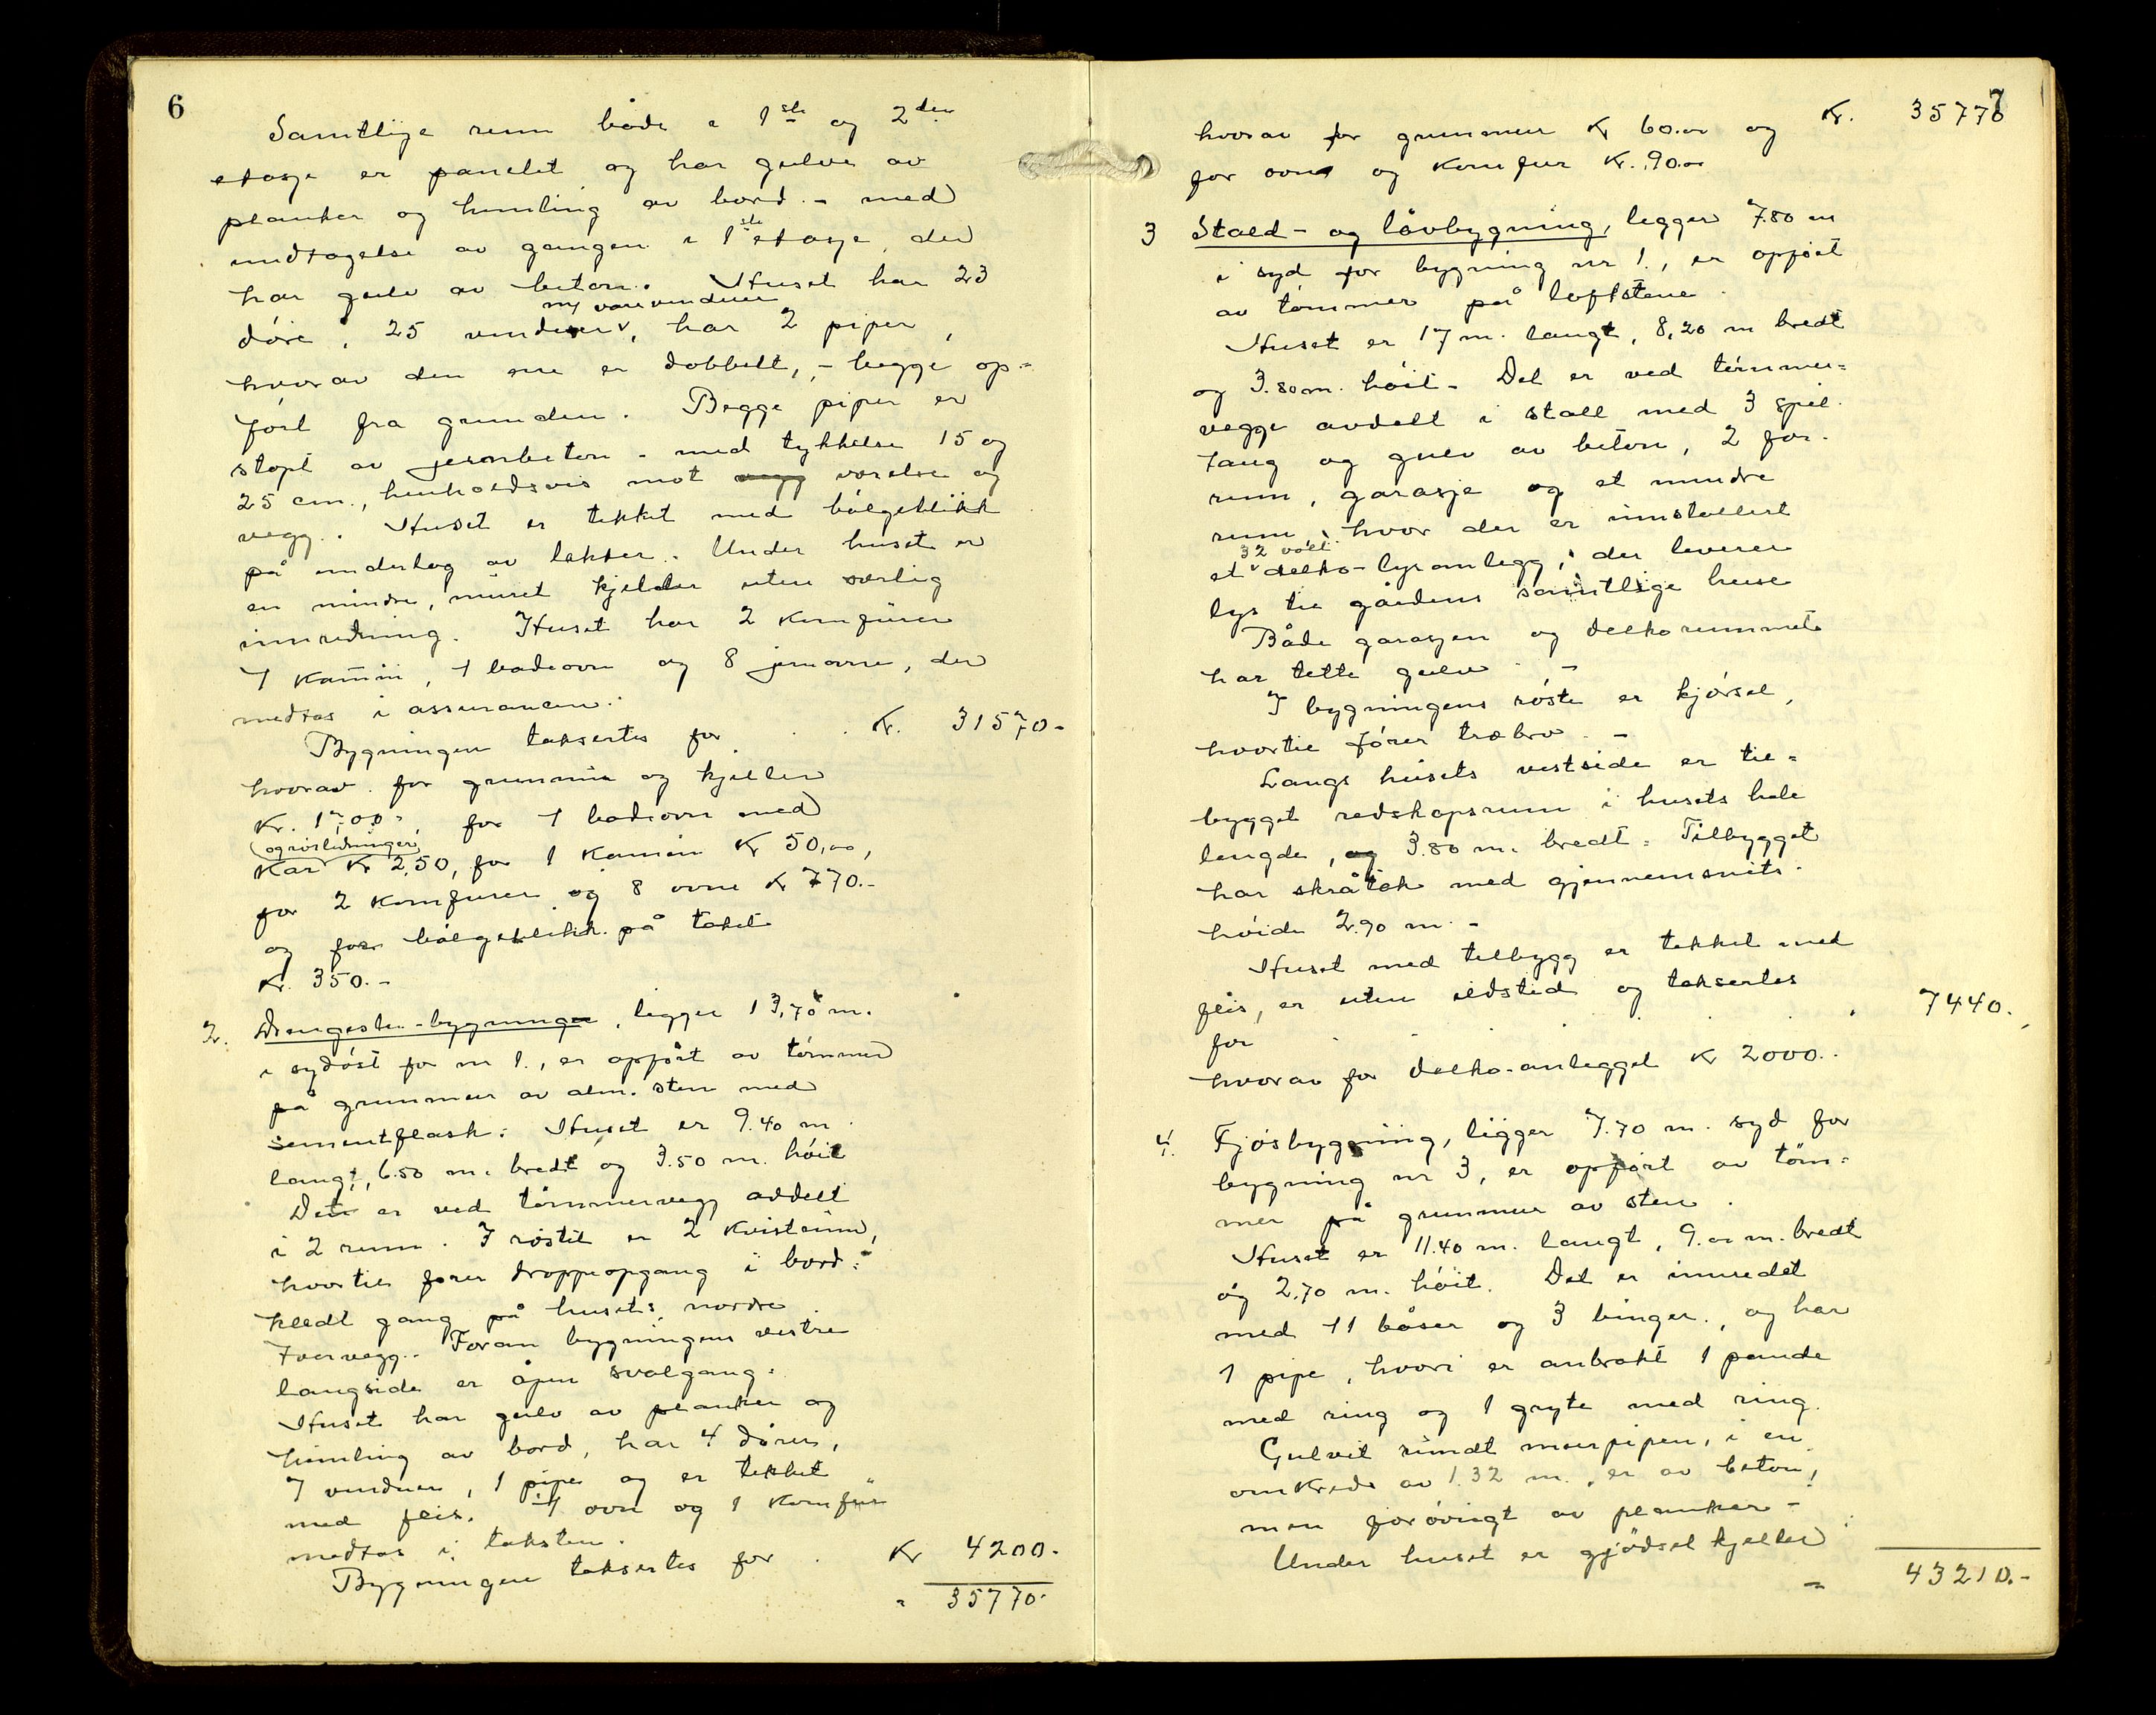 6
Samtlige rum både i 1ste og 2den
etasje er panelet og har gulve av
planker og himling av bord. - med
undtagelse av gangen i 1ste etasje, der
har gulv av beton. Huset har 23
m/ varevinduer
døre, 25 vinduer, har 2 piper,
hvorav den ene er dobbelt, - begge op=
ført fra grunden. Begge piper er
støpt av jernbeton - med tykkelse 15 og
25 cm., henholdsvis mot vegg værelse og
vegg. Huset er tekket med bølgeblikk
på underlag av lekter. Under huset er
en mindre, muret kjelder uten særlig
innredning. Huset har 2 komfurer
1 kamin, 1 badeovn og 8 jernovne, der
medtas i assurancen.
Bygningen taksertes for . . Kr. 31570-
hvorav for grunnmur og kjeller
Kr. 1700- for 1 badeovn med
og rørledninger
kar Kr 250, for 1 kamin Kr 50,00,
for 2 komfurer og 8 ovne Kr 770.-
og for bølgeblikk på taket
Kr. 350.-
2. Drengestu-bygninge, ligger 13,70 m.
i sydøst for nr 1., er opført av tømmer
på grunnmur av alm. sten med
sementflask. Huset er 9.40 m
langt, 6.50 m. bredt og 3.50 m. høit
Det er ved tømmervegg avdelt
i 2 rum. I røstet er 2 kvistrum,
hvortil fører droppeopgang i bord=
kledt gang på husets nordre
tvervegg. Foran bygningens vestre
langside er åpen svalgang.
Huset har gulv av planker og
himling av bord, har 4 dører,
7 vinduer, 1 pipe og er tekket
med flis. 1 ovn og 1 komfur
medtas i taksten.
Bygningen taksertes for . Kr 4200.-
" 35770.-
7
hvorav for grunnmur Kr 60.00 og Kr. 35770
for ovn og komfur Kr. 90.00
3 Stald- og låvbygning, ligger 7.80 m
i syd for bygning nr 1., er opført
av tømmer på loftstene.
Huset er 17 m. langt, 8,20 m bredt
og 3.80 m. høit - Det er ved tømmer=
vegge avdelt i stall med 3 spil-
taug og gulv av beton, 2 for-
rum, garasje og et mindre
rum, hvor der er innstallert
32 volt
et delko-lysanlegg, der leverer
lys til gårdens samtlige huse
Både garasjen og delkorummet
har tette gulv. -
I bygningens røste er kjørsel,
hvortil fører træbro. -
Langs husets vestside er til=
bygget redskapsrum i husets hele
lengde, og 3.80 m. bredt. Tilbygget
har skråtak med gjennemsnits-
høide 2.90 m. -
Huset med tilbygg er tekket med
flis, er uten ildsted og taksertes
for . . . . . 7440.
hvorav for delko-anlegget Kr 2000.-
4. Fjøsbygning, ligger 7.70 m. syd for
bygning nr 3, er opført av tøm=
mer på grunnmur av sten.
Huset er 11.40 m. langt, 9.00 m. bredt
og 2.70 m. høit. Det er innredet
med 11 båser og 3 binger, og har
1 pipe, hvori er anbrakt 1 pande
med ring og 1 gryte med ring.
Gulvet rundt murpipen, i en
omkreds av 1.32 m., er av beton,
men forøvrigt av planker -
Under huset er gjødselkjeller
- 43210.-